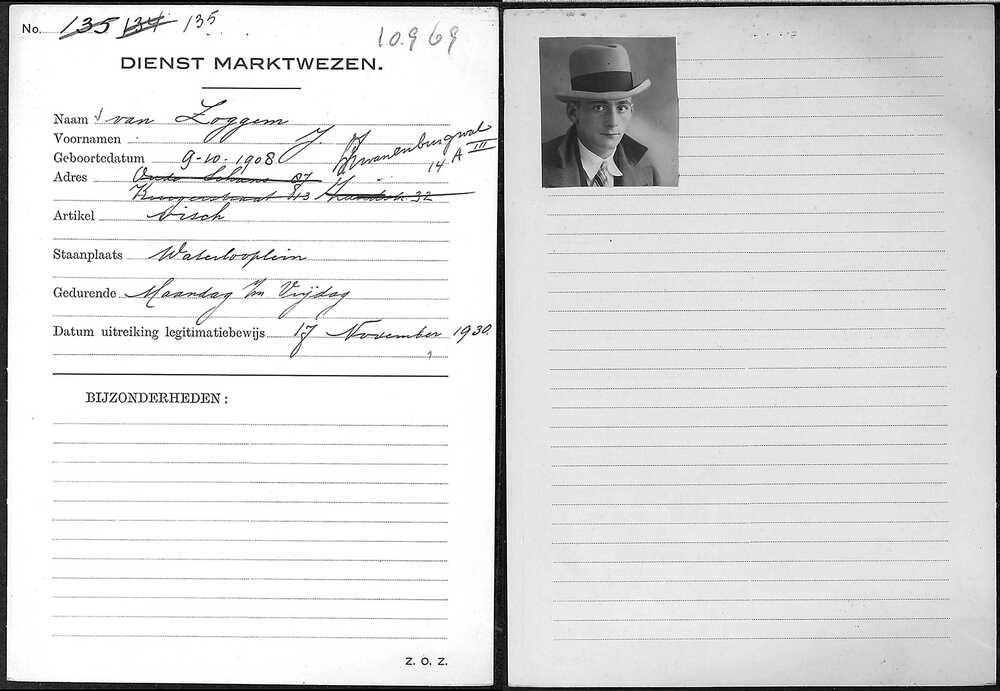 No. 135 134 135
10.9 69
DIENST MARKTWEZEN.
Naam van Zoggem
Voornamen J.
Geboortedatum 9-10-1908
Zwanenburgwal
14 A III
Adres Oude Schans 87
43 32
Artikel visch
Staanplaats Waterlooplein
Gedurende Maandag t/m Vrijdag
Datum uitreiking legitimatiebewijs 17 November 1930.
BIJZONDERHEDEN:
Z. O. Z.